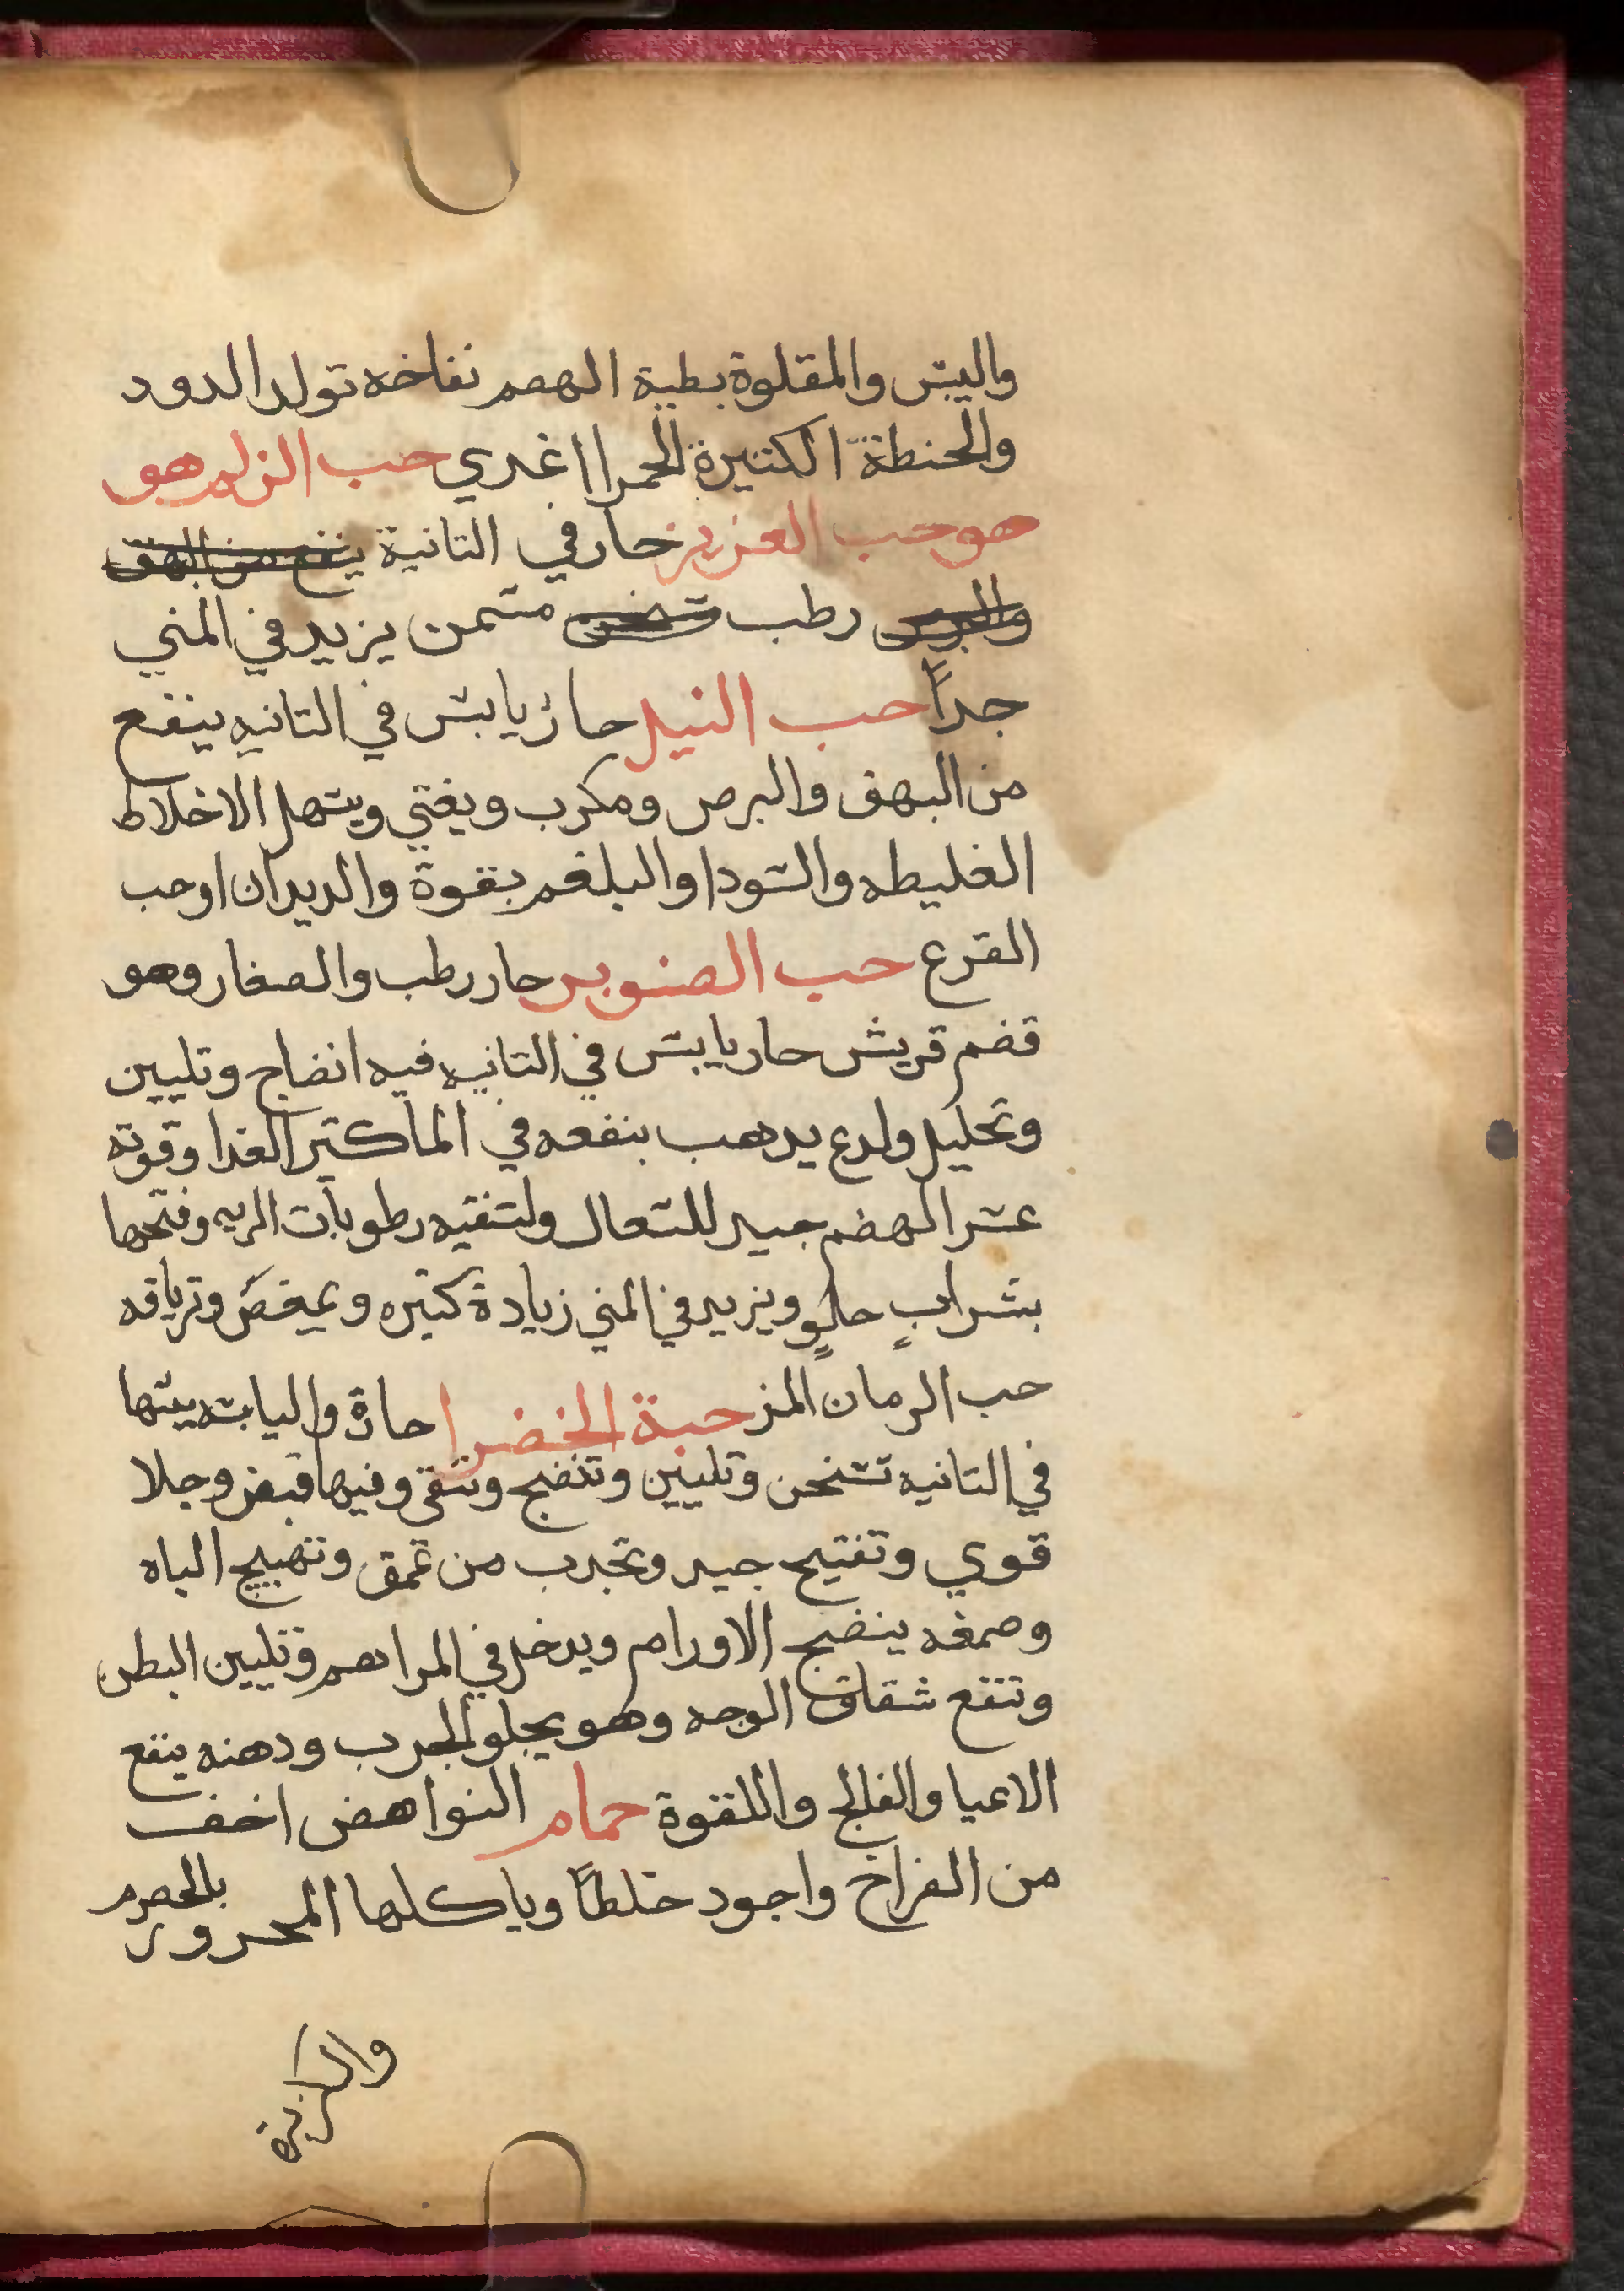 واليبس والمقلوة بطية الهضم نفاخه تولد الدود
والحنطة الكتيرة الحمرا اغدي حب الزلم هو
هو حب العزيز حار في التانية ينفع من البهق
والبرص رطب تسخن مسمن يزيد في المني
جداً حب النيل حار يابس في التانيه ينفع
من البهق والبرص ومكرب ويغتي ويسهل الاخلاط
الغليطه والسودا والبلغم بقوة والديدان اوحب
القرع حب الصنوبر حار رطب والصغار وهو
قضم قريش حار يابس في التانيه فيه انضاج وتليين
وتحليل ولدع يدهب بنفعه في الما كتير الغدا وقوته
عسر الهضم جيد للسعال ولتنقيه رطوبات الريه وفتحها
بشرابٍ حلوٍ ويزيد في المني زيادة كتيره ويمغص وترياقه
حب الرمان المز حبة الخضرا حارة واليابسه يبسها
في التانيه تسخن وتليين وتنضج وتنقي وفيها قبض وجلا
قوي وتفتيح جيد وتجدب من عمق وتهييج الباه
وصمغه ينضج الاورام ويدخل في المراهم وتليين البطن
وتنفع شقاق الوجه وهو يجلو الجرب ودهنه ينفع
الاعيا والفالج واللقوة حمام النواهض اخف
من الفراخ واجود خلطاً وياكلها المحرور بالحصرم
والكزبرة